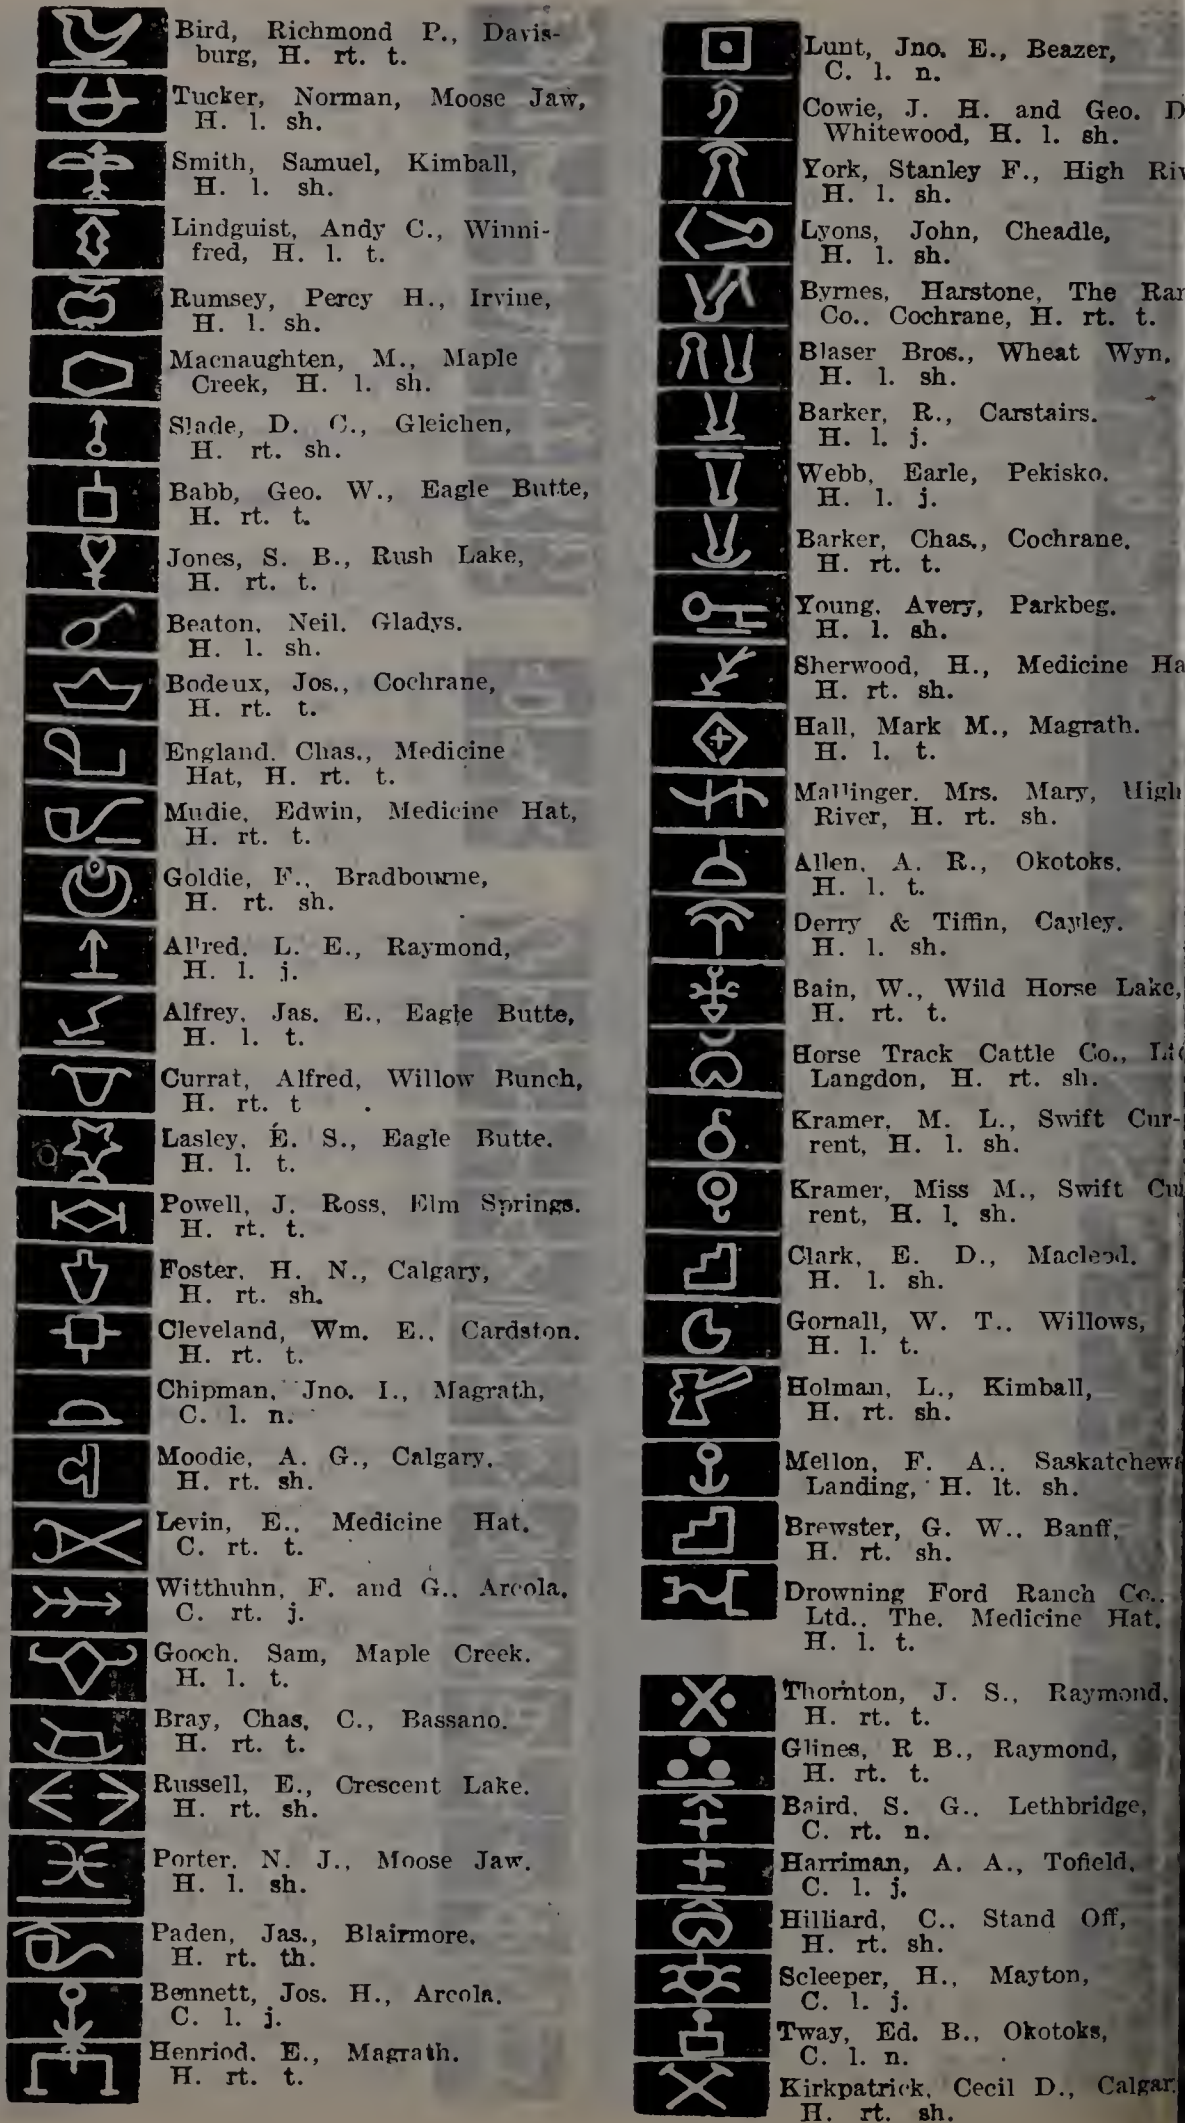 Bird, Richmond P., Davis-
burg, H. rt. t.
Tucker, Norman, Moose Jaw,
H. l. sh.
Smith, Samuel, Kimball,
H. l. sh.
Lindguist, Andy C., Winni-
fred, H. l. t.
Rumsey, Percy H., Irvine,
H. l. sh.
Macnaughten, M., Maple
Creek, H. l. sh.
Slade, D. C., Gleichen,
H. rt. sh.
Babb, Geo. W., Eagle Butte,
H. rt. t.
Jones, S. B., Rush Lake,
H. rt. t.
Beaton, Neil. Gladys.
H. l. sh.
Bodeux, Jos., Cochrane,
H. rt. t.
England. Chas., Medicine
Hat, H. rt. t.
Mudie, Edwin, Medicine Hat,
H. rt. t.
Goldie, F., Bradbourne,
H. rt. sh.
Allred, L. E., Raymond,
H. l. j.
Alfrey, Jas. E., Eagle Butte,
H. l. t.
Currat, Alfred, Willow Bunch,
H. rt. t .
Lasley, E. S., Eagle Butte.
H. l. t.
Powell, J. Ross, Elm Springs.
H. rt. t.
Foster, H. N., Calgary,
H. rt. sh.
Cleveland, Wm. E., Cardston.
H. rt. t.
Chipman, Jno. I., Magrath,
C. l. n.
Moodie, A. G., Calgary.
H. rt. sh.
Levin, E., Medicine Hat.
C. rt. t.
Witthuhn, F. and G., Arcola.
C. rt. j.
Gooch. Sam, Maple Creek.
H. l. t.
Bray, Chas. C., Bassano.
H. rt. t.
Russell, E., Crescent Lake.
H. rt. sh.
Porter, N. J., Moose Jaw.
H. l. sh.
Paden, Jas., Blairmore.
H. rt. th.
Bennett, Jos. H., Arcola.
C. l. j.
Henriod. E., Magrath.
H. rt. t.
Lunt, Jno. E., Beazer,
C. l. n.
Cowie, J. H. and Geo. D
Whitewood, H. l. sh.
York, Stanley F., High Riv
H. l. sh.
Lyons, John, Cheadle,
H. l. sh.
Byrnes, Harstone, The Ran
Co.. Cochrane, H. rt. t.
Blaser Bros., Wheat Wyn,
H. l. sh.
Barker, R., Carstairs.
H. l. j.
Webb, Earle, Pekisko.
H. l. j.
Barker, Chas., Cochrane.
H. rt. t.
Young, Avery, Parkbeg.
H. l. sh.
Sherwood, H., Medicine Ha
H. rt. sh.
Hall, Mark M., Magrath.
H. l. t.
Mallinger. Mrs. Mary, High
River, H. rt. sh.
Allen, A. R., Okotoks.
H. l. t.
Derry & Tiffin, Cayley.
H. l. sh.
Bain, W., Wild Horse Lake,
H. rt. t.
Horse Track Cattle Co.,
Langdon, H. rt. sh.
Kramer, M. L., Swift Cur-
rent, H. l. sh.
Kramer, Miss M., Swift Cu
rent, H. l. sh.
Clark, E. D., Macleod.
H. l. sh.
Gornall, W. T., Willows,
H. l. t.
Holman, L., Kimball,
H. rt. sh.
Mellon, F. A., Saskatchewa
Landing, H. lt. sh.
Brewster, G. W., Banff,
H. rt. sh.
Drowning Ford Ranch Co..
Ltd., The, Medicine Hat.
H. l. t.
Thornton, J. S., Raymond,
H. rt. t.
Glines, R B., Raymond,
H. rt. t.
Baird. S. G., Lethbridge,
C. rt. n.
Harriman, A. A., Tofield.
C. l. j.
Hilliard, C., Stand Off,
H. rt. sh.
Scleeper, H., Mayton,
C. l. j.
Tway, Ed. B., Okotoks,
C. l. n.
Kirkpatrick, Cecil D., Calgar
H. rt. sh.